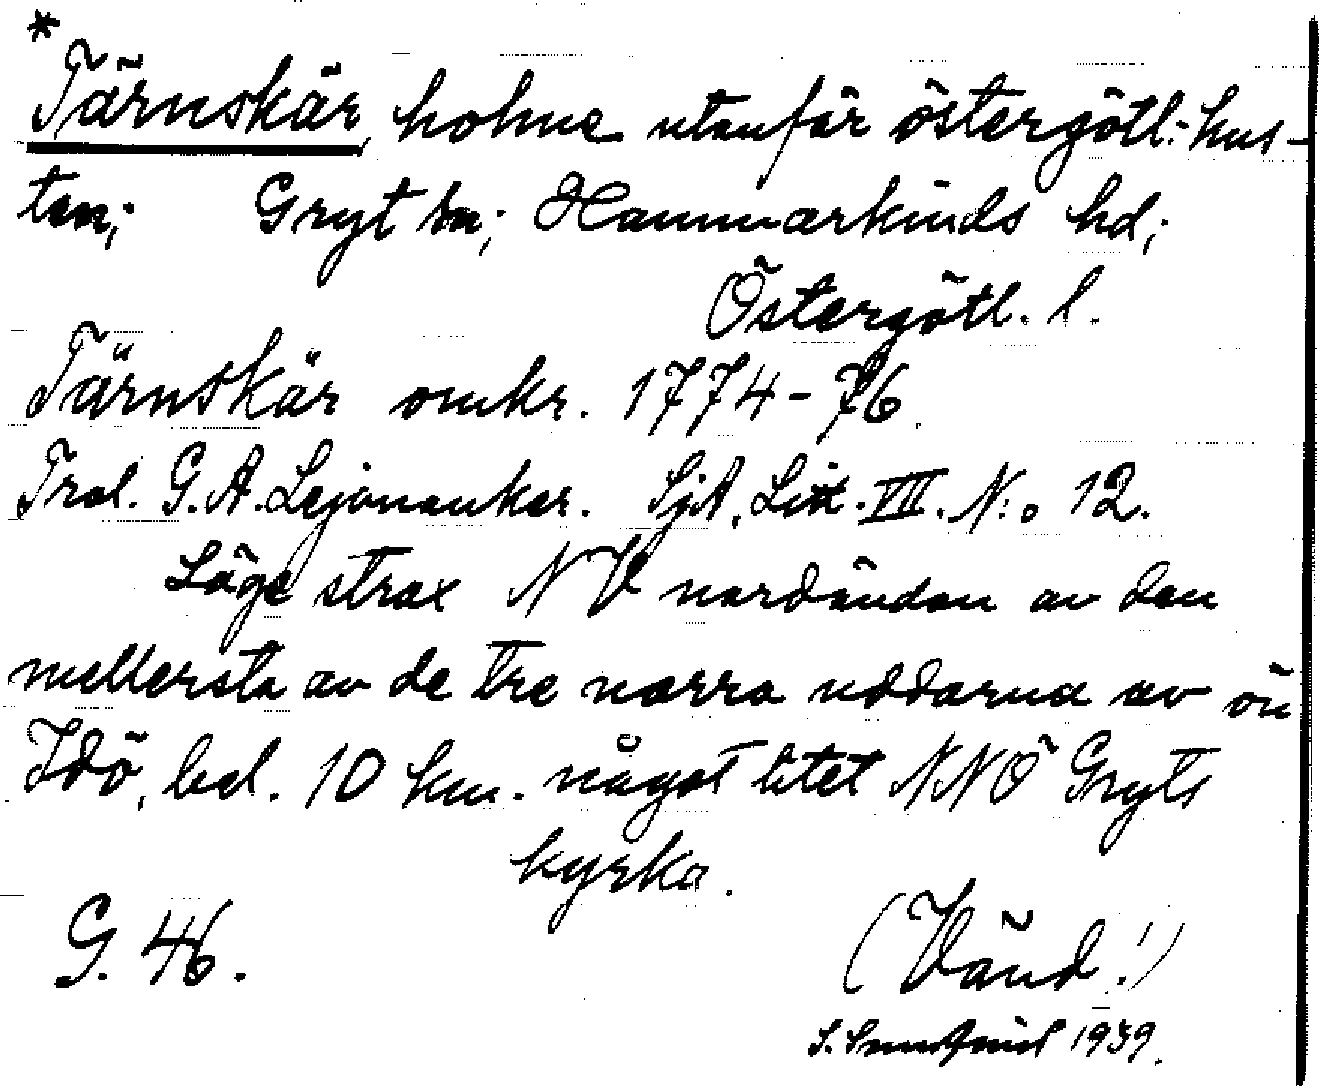 *
Tärnskär, holme utanför östergötl. kus-
ten; Gryt sn; Hammarkinds hd;
Östergötl. l.
Tärnskär omkr. 1774-76.
Trol. G. A. Lejonanker. SjA, Litt. VII. N:o 12.
Läge strax NV nordändan av den
mellersta av de tre norra uddarna av ön
Idö, bel. 10 km. något litet NNÖ Gryts
kyrka.
G. 46.
(Vänd!)
1939.